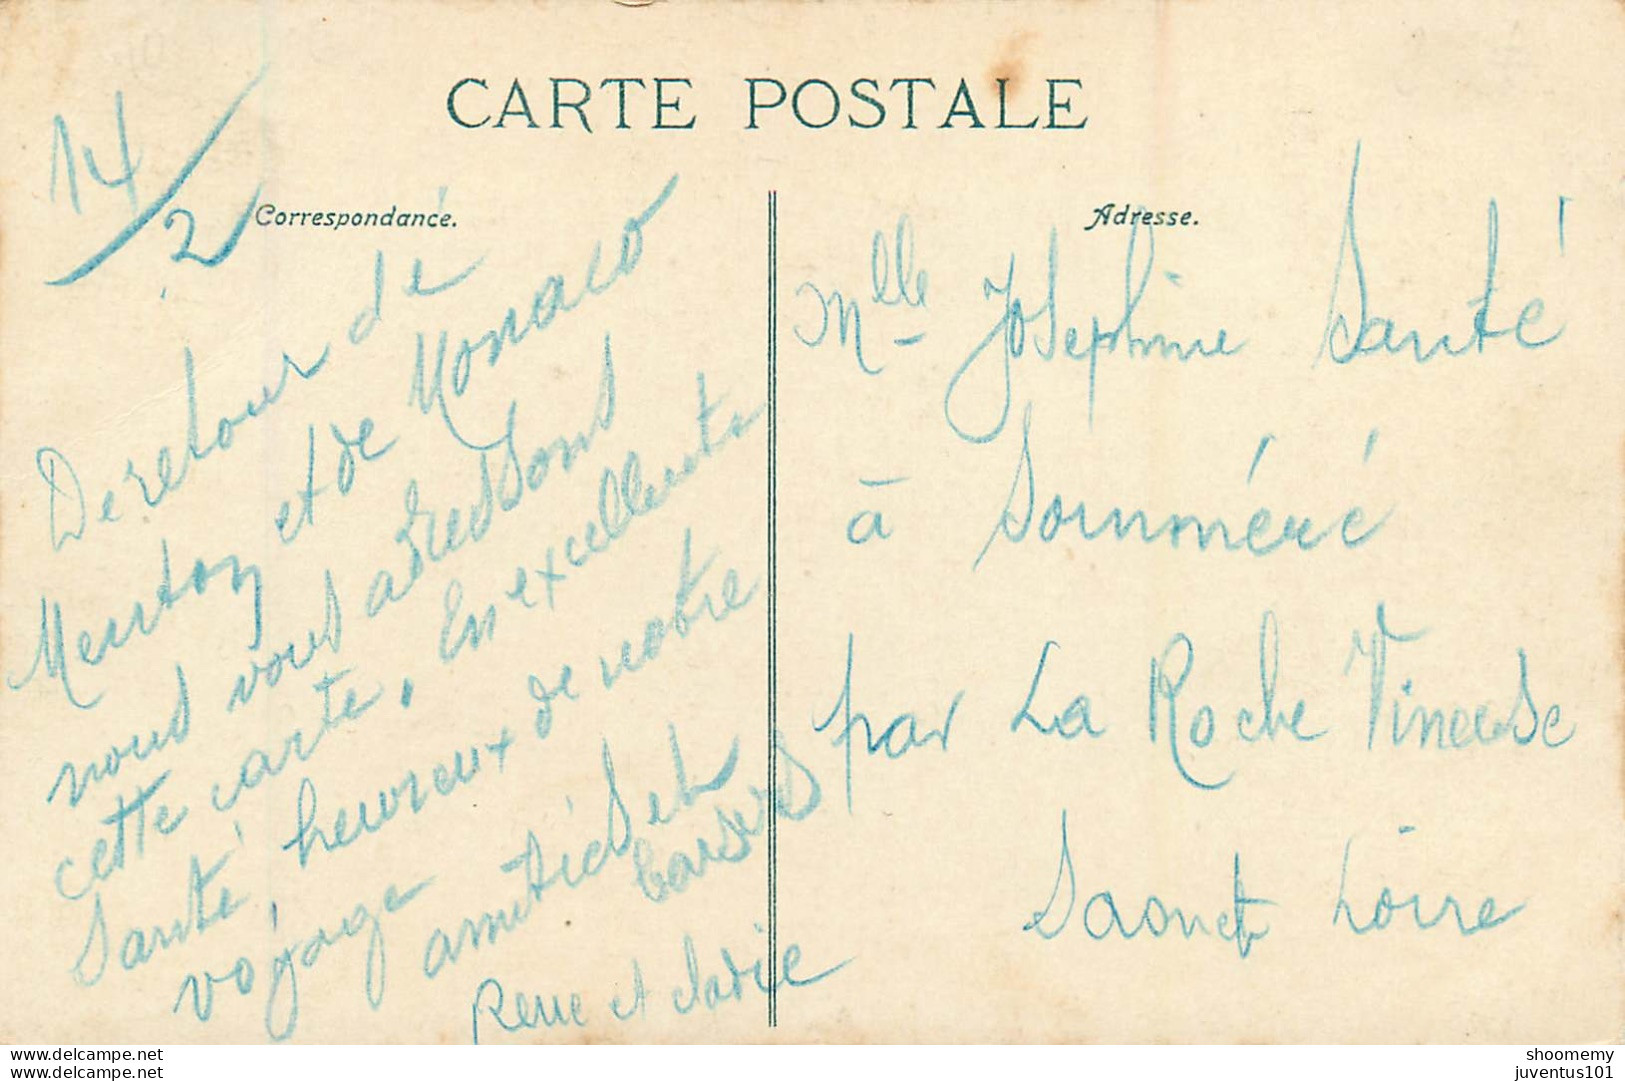 CARTE POSTALE
14/2
Correspondance.
De retour de
Menton et de Monaco
nous vous adressons
cette carte. En excellente
Santé, heureux de notre
voyage
amitiés et
baisers
René et
Adresse.
Mlle Josephine Santé
à Sommeré
par La Roche Vineuse
Saone et Loire
delcampe.net
delcampe.net
shoomemy
juventus101